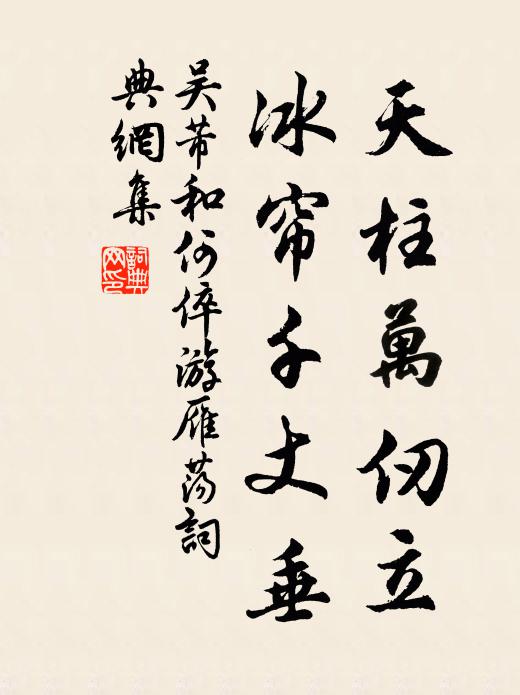 天柱萬仞立
冰帘千丈垂
吴芾和何倅游雁蕩詞
典網集
詞典
网印